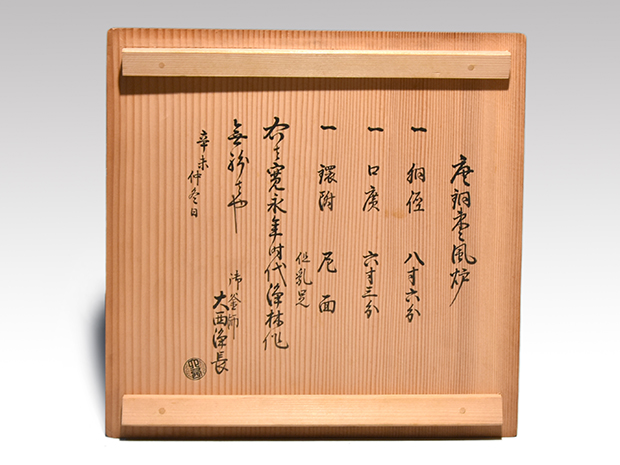 唐銅棗風炉
一 胴径 八寸六分
一 口廣 六寸三分
一 鐶附 尼面
但乱足
右者寛永年時代浄林作
無紛者也
辛未仲冬日
御釜師
大西浄長